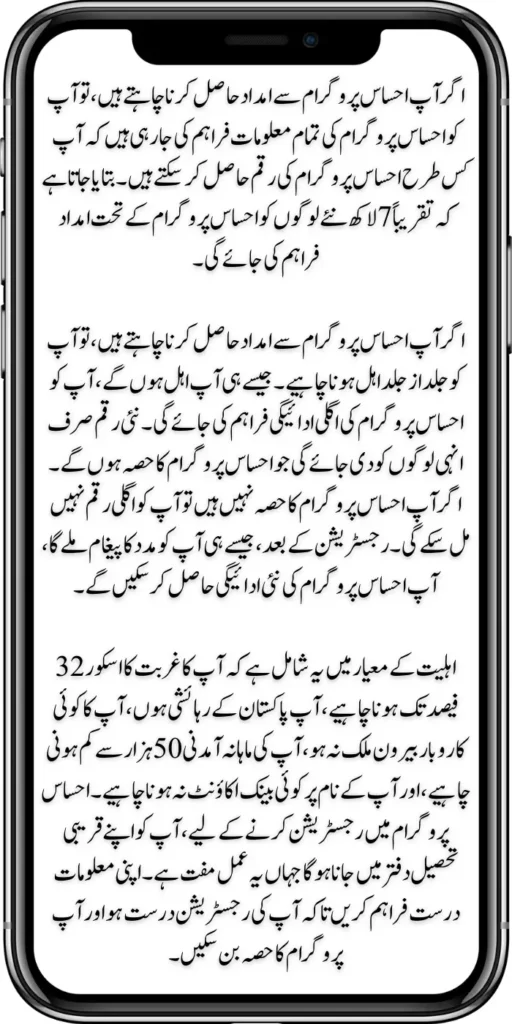 اگر آپ احساس پروگرام سے امداد حاصل کرنا چاہتے ہیں، تو آپ
کو احساس پروگرام کی تمام معلومات فراہم کی جا رہی ہیں کہ آپ
کس طرح احساس پروگرام کی رقم حاصل کر سکتے ہیں۔ بتایا جاتا ہے
کہ تقریباً 7 لاکھ نئے لوگوں کو احساس پروگرام کے تحت امداد
فراہم کی جائے گی۔
اگر آپ احساس پروگرام سے امداد حاصل کرنا چاہتے ہیں، تو آپ
کو جلد از جلد اہل ہونا چاہیے۔ جیسے ہی آپ اہل ہوں گے، آپ کو
احساس پروگرام کی اگلی ادائیگی فراہم کی جائے گی۔ نئی رقم صرف
انہی لوگوں کو دی جائے گی جو احساس پروگرام کا حصہ ہوں گے۔
اگر آپ احساس پروگرام کا حصہ نہیں ہیں تو آپ کو اگلی رقم نہیں
مل سکے گی۔ رجسٹریشن کے بعد، جیسے ہی آپ کو مدد کا پیغام ملے گا،
آپ احساس پروگرام کی نئی ادائیگی حاصل کر سکیں گے۔
اہلیت کے معیار میں یہ شامل ہے کہ آپ کا غربت کا اسکور 32
فیصد تک ہونا چاہیے، آپ پاکستان کے رہائشی ہوں، آپ کا کوئی
کاروبار بیرون ملک نہ ہو، آپ کی ماہانہ آمدنی 50 ہزار سے کم ہونی
چاہیے، اور آپ کے نام پر کوئی بینک اکاؤنٹ نہ ہونا چاہیے۔ احساس
پروگرام میں رجسٹریشن کرنے کے لیے، آپ کو اپنے قریبی
تحصیل دفتر میں جانا ہوگا جہاں یہ عمل مفت ہے۔ اپنی معلومات
درست فراہم کریں تاکہ آپ کی رجسٹریشن درست ہو اور آپ
پروگرام کا حصہ بن سکیں۔